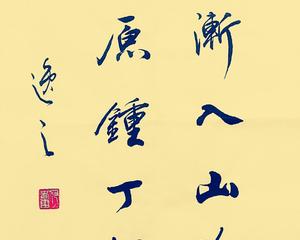 漸入山
原鍾丁
逸之